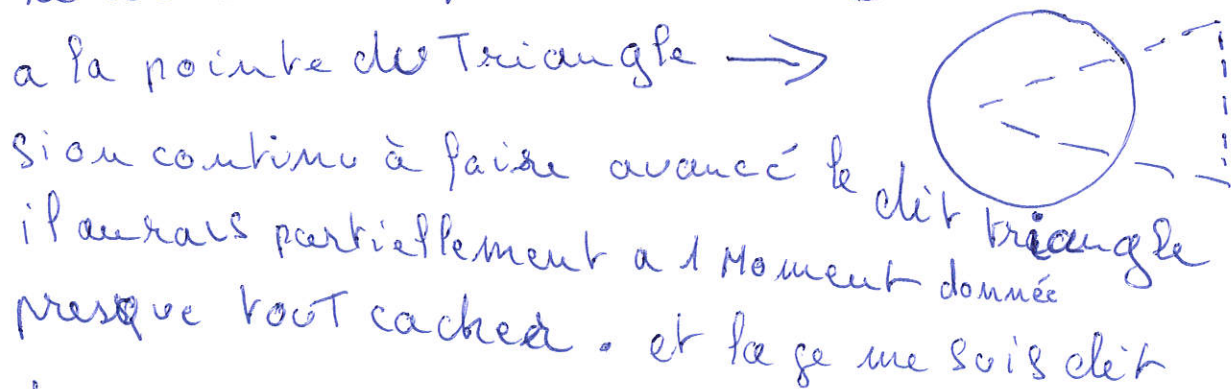 a la pointe du Triangle →
si on continu à faire avancé le dit triangle
il aurais partiellement a 1 Moment donnée
presque tout cacher. et la ge me suis dit